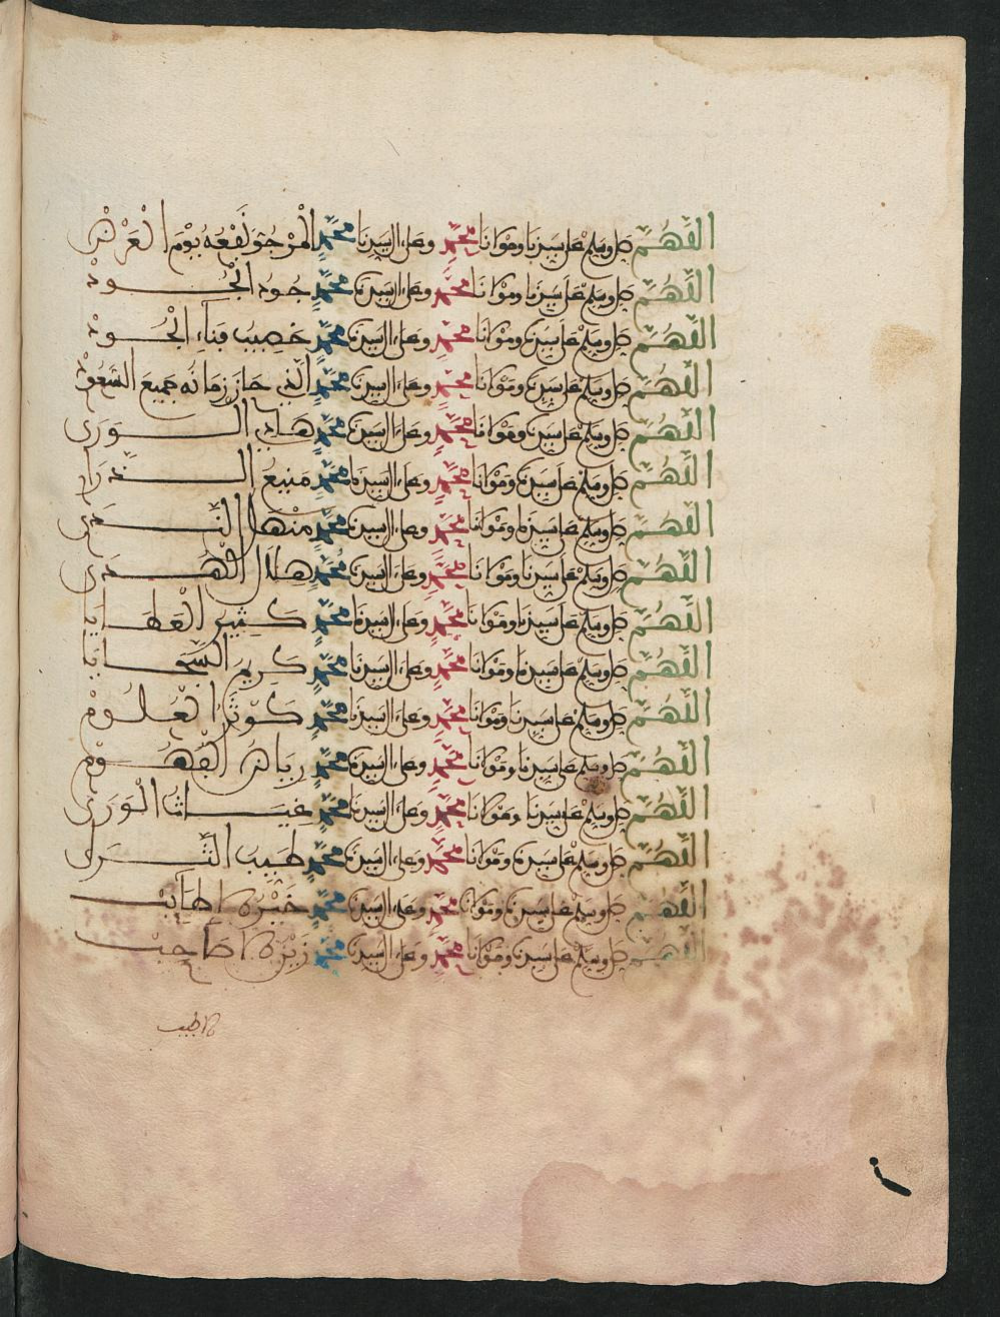 اللهم صل وسلم على سيدنا ومولانا محمد وعلى ال سيدنا محمد المرجو نفعه يوم العرض
اللهم صل وسلم على سيدنا ومولانا محمد وعلى ال سيدنا محمد جود الجود
اللهم صل وسلم على سيدنا ومولانا محمد وعلى ال سيدنا محمد خصيب فناء الجود
اللهم صل وسلم على سيدنا ومولانا محمد وعلى ال سيدنا محمد الذي حاز زمانه جميع السعود
اللهم صل وسلم على سيدنا ومولانا محمد وعلى ال سيدنا محمد هادي الورى
اللهم صل وسلم على سيدنا ومولانا محمد وعلى ال سيدنا محمد منيع
اللهم صل وسلم على سيدنا ومولانا محمد وعلى ال سيدنا محمد منهل الندى
اللهم صل وسلم على سيدنا ومولانا محمد وعلى ال سيدنا محمد هلال الهدى
اللهم صل وسلم على سيدنا ومولانا محمد وعلى ال سيدنا محمد كثير العطايا
اللهم صل وسلم على سيدنا ومولانا محمد وعلى ال سيدنا محمد كريم السجايا
اللهم صل وسلم على سيدنا ومولانا محمد وعلى ال سيدنا محمد كوثر العلوم
اللهم صل وسلم على سيدنا ومولانا محمد وعلى ال سيدنا محمد رياض الفهوم
اللهم صل وسلم على سيدنا ومولانا محمد وعلى ال سيدنا محمد غياث الورى
اللهم صل وسلم على سيدنا ومولانا محمد وعلى ال سيدنا محمد طبيب
اللهم صل وسلم على سيدنا ومولانا محمد وعلى ال سيدنا محمد خيرة الاطايب
اللهم صل وسلم على سيدنا ومولانا محمد وعلى ال سيدنا محمد